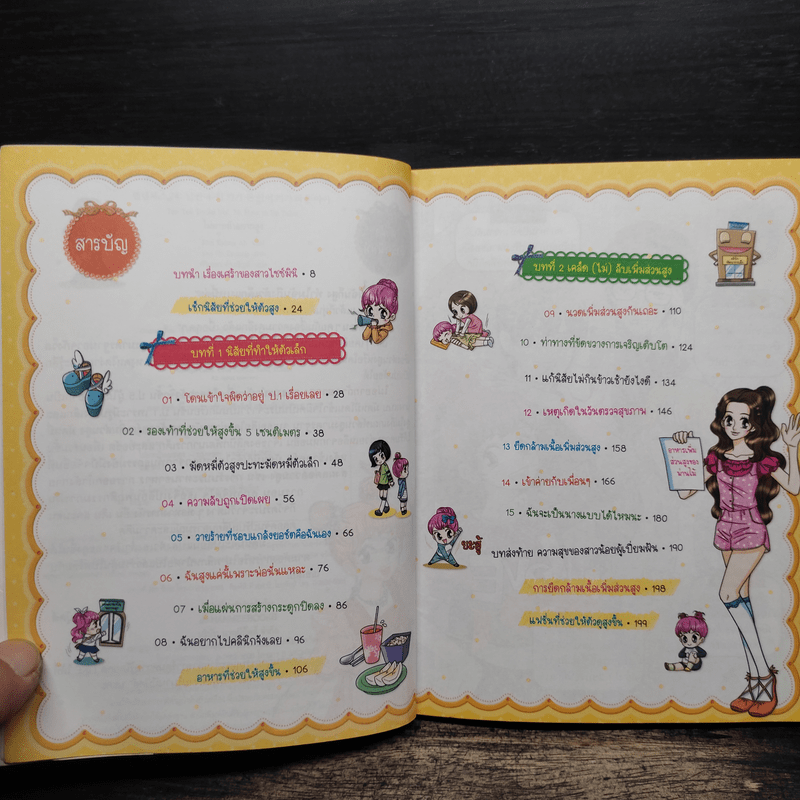 สารบัญ
บทนำ เรื่องเศร้าของสาวไซซ์มินิ • 8
เช็กนิสัยที่ช่วยให้ตัวสูง • 24
บทที่ 1 นิสัยที่ทำให้ตัวเล็ก
01 • โดนเข้าใจผิดว่าอยู่ ป.1 เรื่อยเลย • 28
02 • รองเท้าที่ช่วยให้สูงขึ้น 5 เซนติเมตร • 38
03 • มัดหมี่ตัวสูงปะทะมัดหมี่ตัวเล็ก • 48
04 • ความลับถูกเปิดเผย • 56
05 • วายร้ายที่ชอบแกล้งยอชัดคือฉันเอง • 66
06 • ฉันสูงแค่นี้เพราะพ่อนั่นแหละ • 76
07 • เมื่อแผ่นการสร้างกระดูกปิดลง • 86
08 • ฉันอยากไปคลินิกจังเลย • 96
อาหารที่ช่วยให้สูงขึ้น • 106
บทที่ 2 เคล็ด (ไม่) ลับเพิ่มส่วนสูง
09 • นวดเพิ่มส่วนสูงกันเถอะ • 110
10 • ท่าทางที่ขัดขวางการเจริญเติบโต • 124
11 • แก้นิสัยไม่กินข้าวเช้ายังไงดี • 134
12 • เหตุเกิดในวันตรวจสุขภาพ • 146
13 ยืดกล้ามเนื้อเพิ่มส่วนสูง • 158
14 • เข้าค่ายกับเพื่อนๆ • 166
15 • ฉันจะเป็นนางแบบได้ไหมนะ • 180
บทส่งท้าย ความสุขของสาวน้อยผู้เปี่ยมฝัน • 190
การยืดกล้ามเนื้อเพิ่มส่วนสูง • 198
แฟชั่นที่ช่วยให้ตัวดูสูงขึ้น • 199
อาหารเพิ่ม
ส่วนสูงของ
ม่านไม้